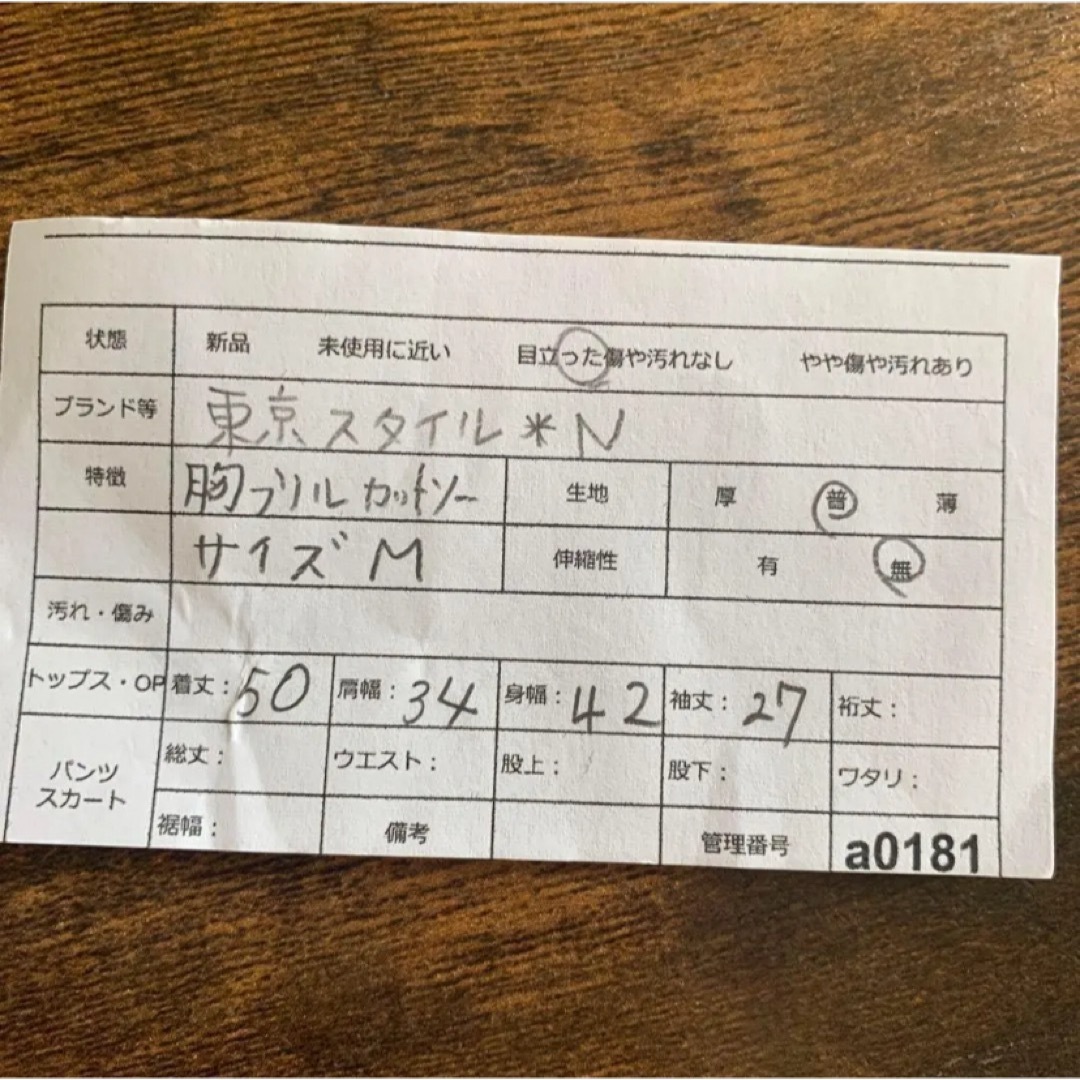 状態 新品 未使用に近い 目立った傷や汚れなし やや傷や汚れあり
ブランド等 東京スタイル*N
特徴 胸フリルカットソー 生地 厚 普 薄
サイズM 伸縮性 有 無
汚れ・傷み
トップス・OP 着丈:50 肩幅:34 身幅:42 袖丈:27 裄丈:
パンツ
スカート
総丈: ウエスト: 股上: 股下: ワタリ:
裾幅: 備考 管理番号 a0181